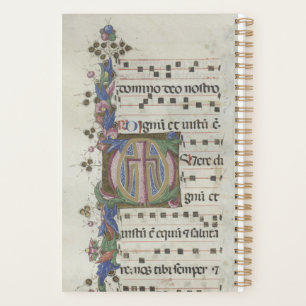 domino deo nostro.
Dignũ et iustũ ẽ.
Vere di
gnũ et
iustũ ẽ equũ et saluta
re: nos tibi semper et